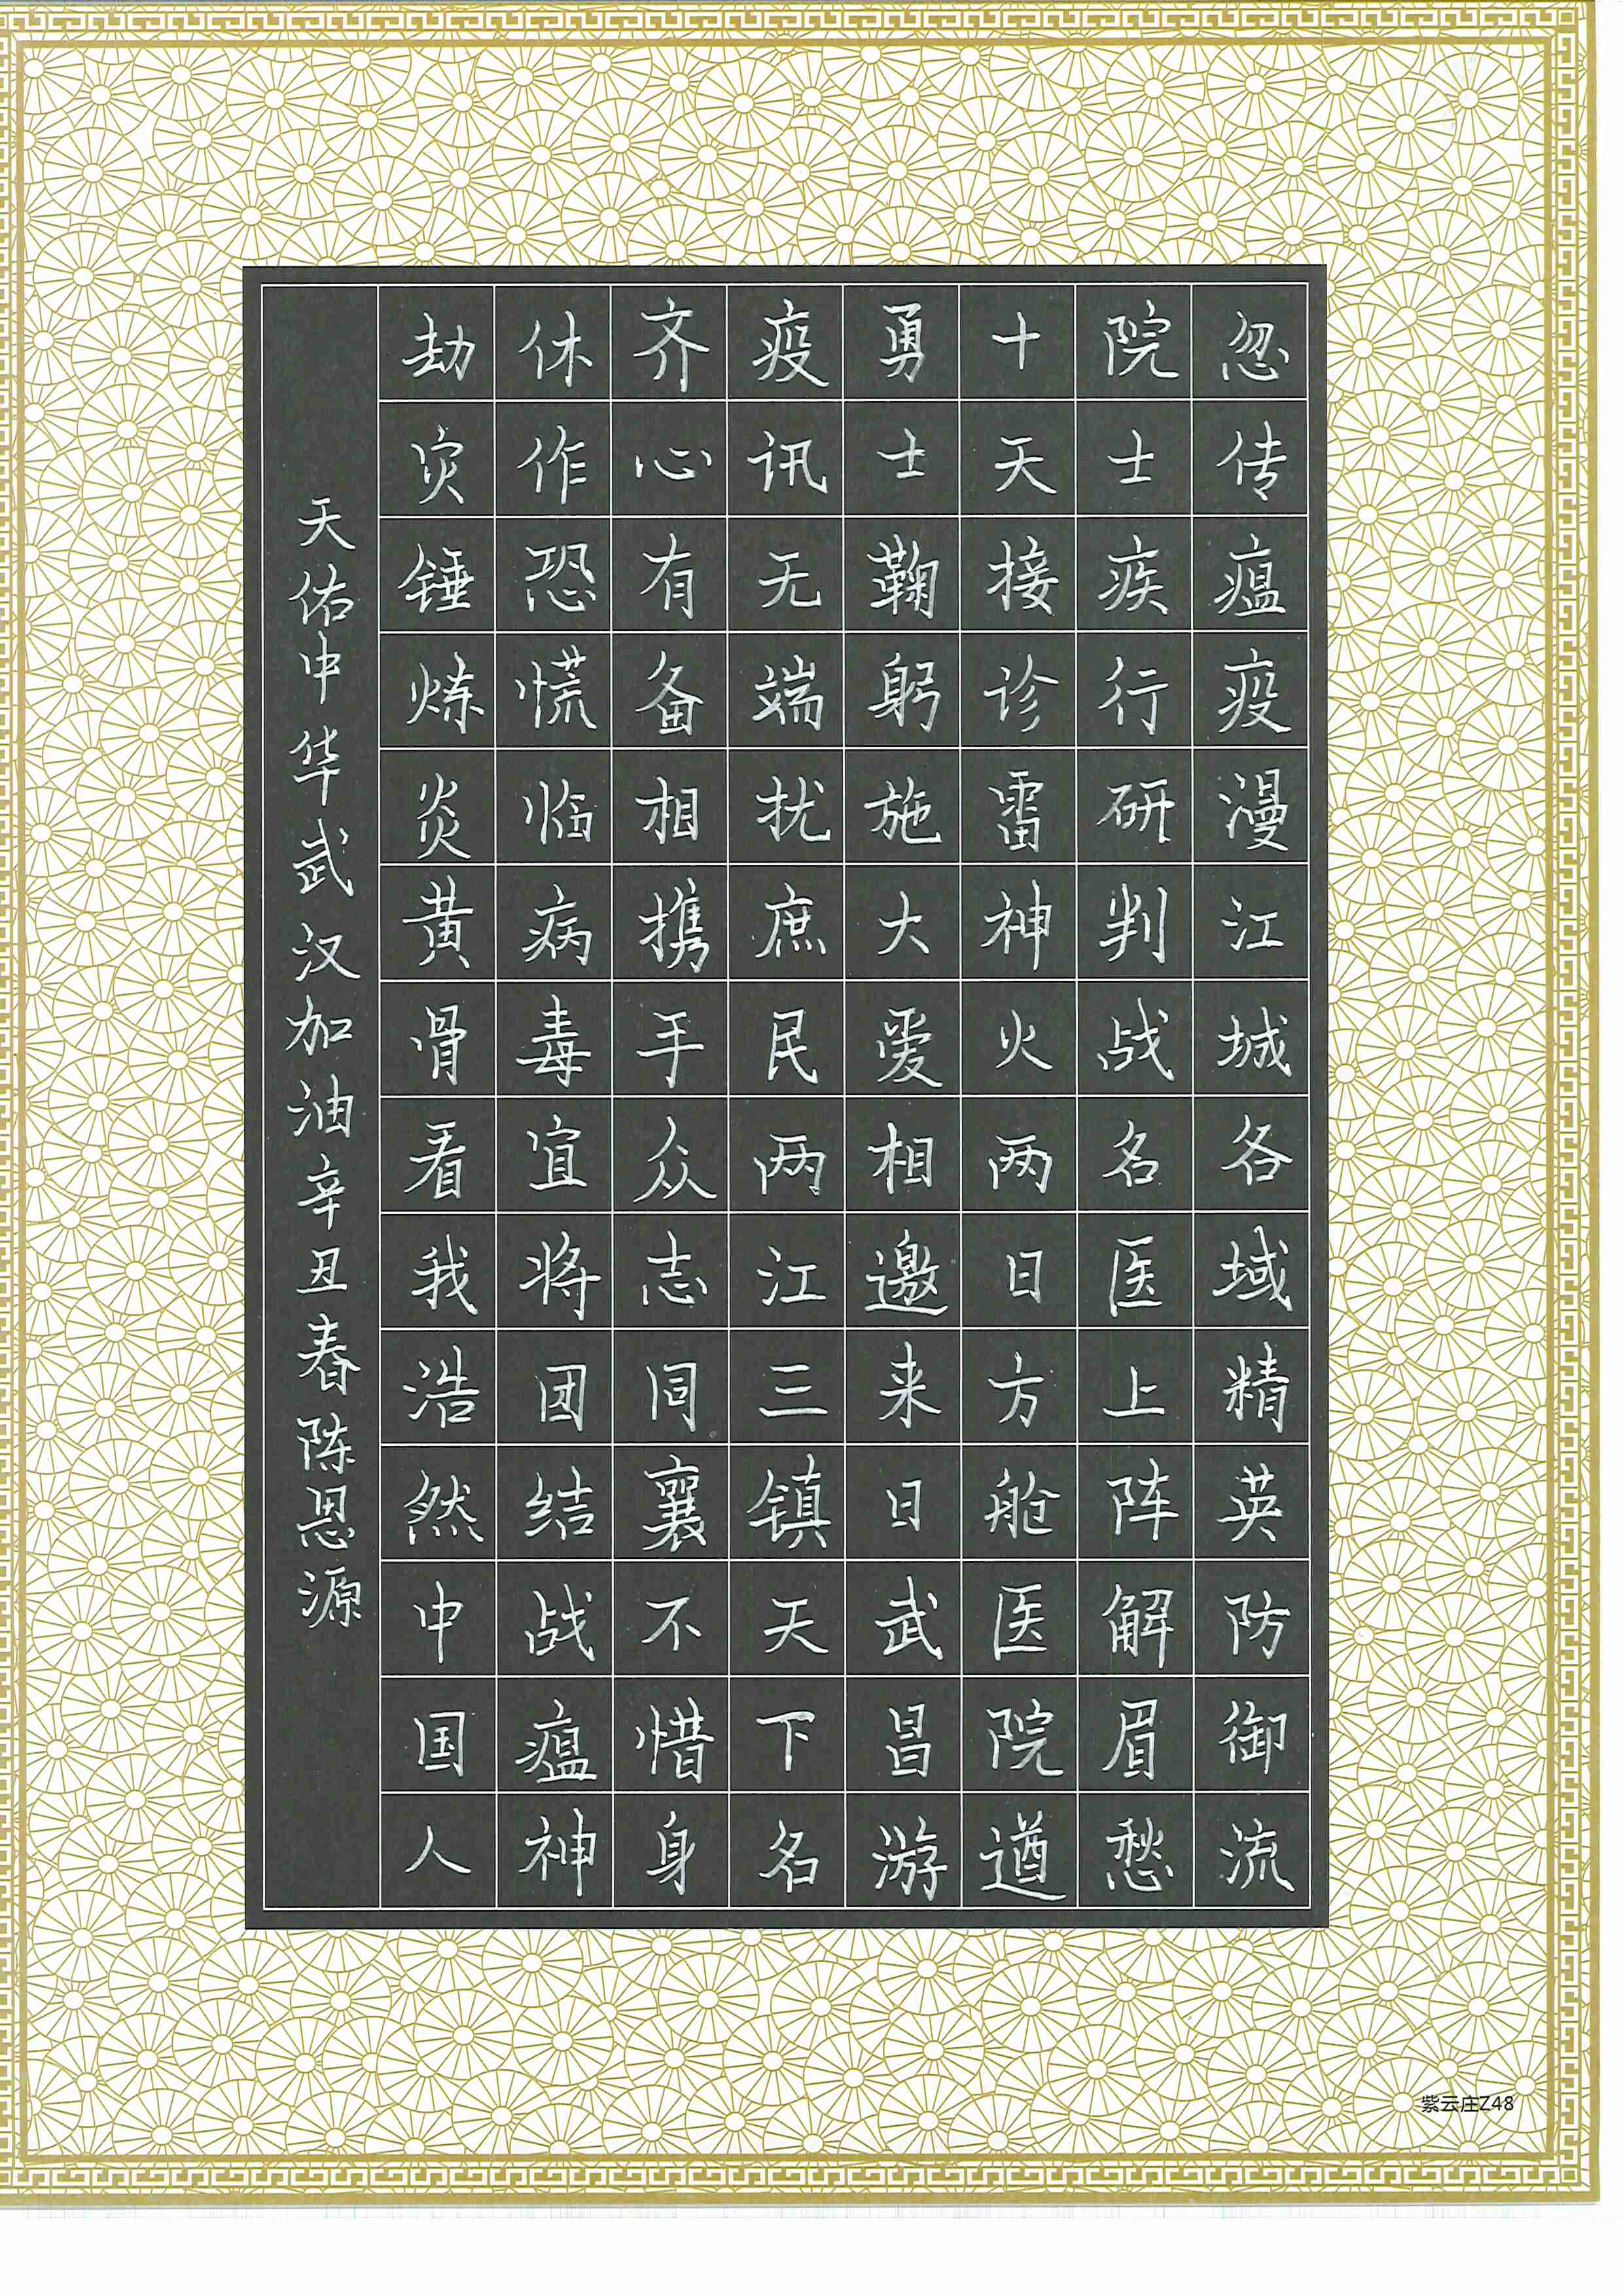 忽传瘟疫漫江城各域精英防御流
院士疾行研判战名医上阵解眉愁
十天接诊雷神火两日方舱医院遒
勇士鞠躬施大爱相邀来日武昌游
疫讯无端扰庶民两江三镇天下名
齐心有备相携手众志同襄不惜身
休作恐慌临病毒宜将团结战瘟神
劫灾锤炼炎黄骨看我浩然中国人
天佑中华武汉加油辛丑春陈恩源
紫云庄Z48